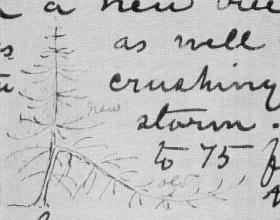 a new tree
as well
crushing
new
storm.
to 75 f
old